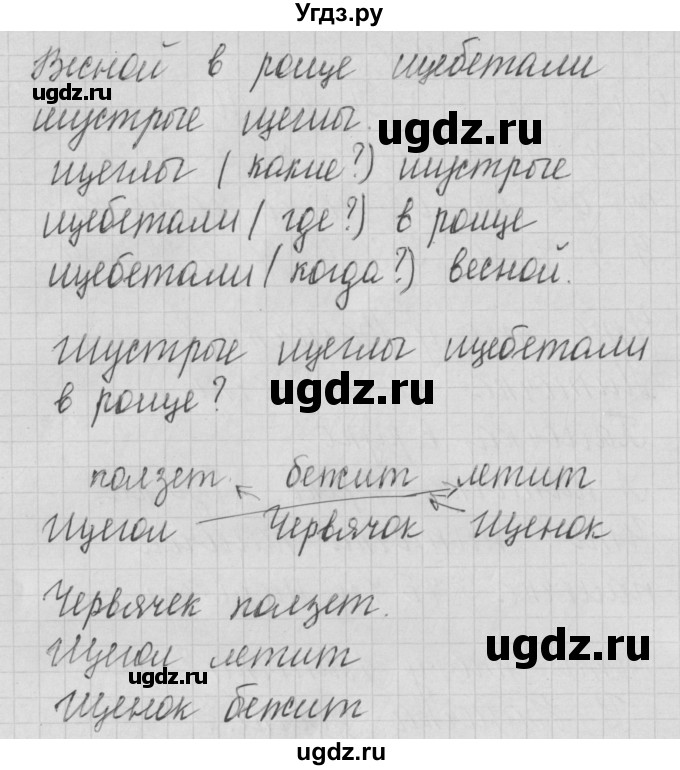 Угдз.ру
Весной в роще щебетали
ugdz.ru
шустрые щеглы.
ugdz.ru
щеглы (какие?) шустрые
щебетали (где?) в роще
щебетали (когда?) весной.
Шустрые щеглы щебетали
ugdz.ru
в роще?
ползет. бежит летит
Щегол Червячок Щенок
Червячек ползет.
ugdz.ru
Щегол летит
ugdz.ru
Щенок бежит
ugdz.ru